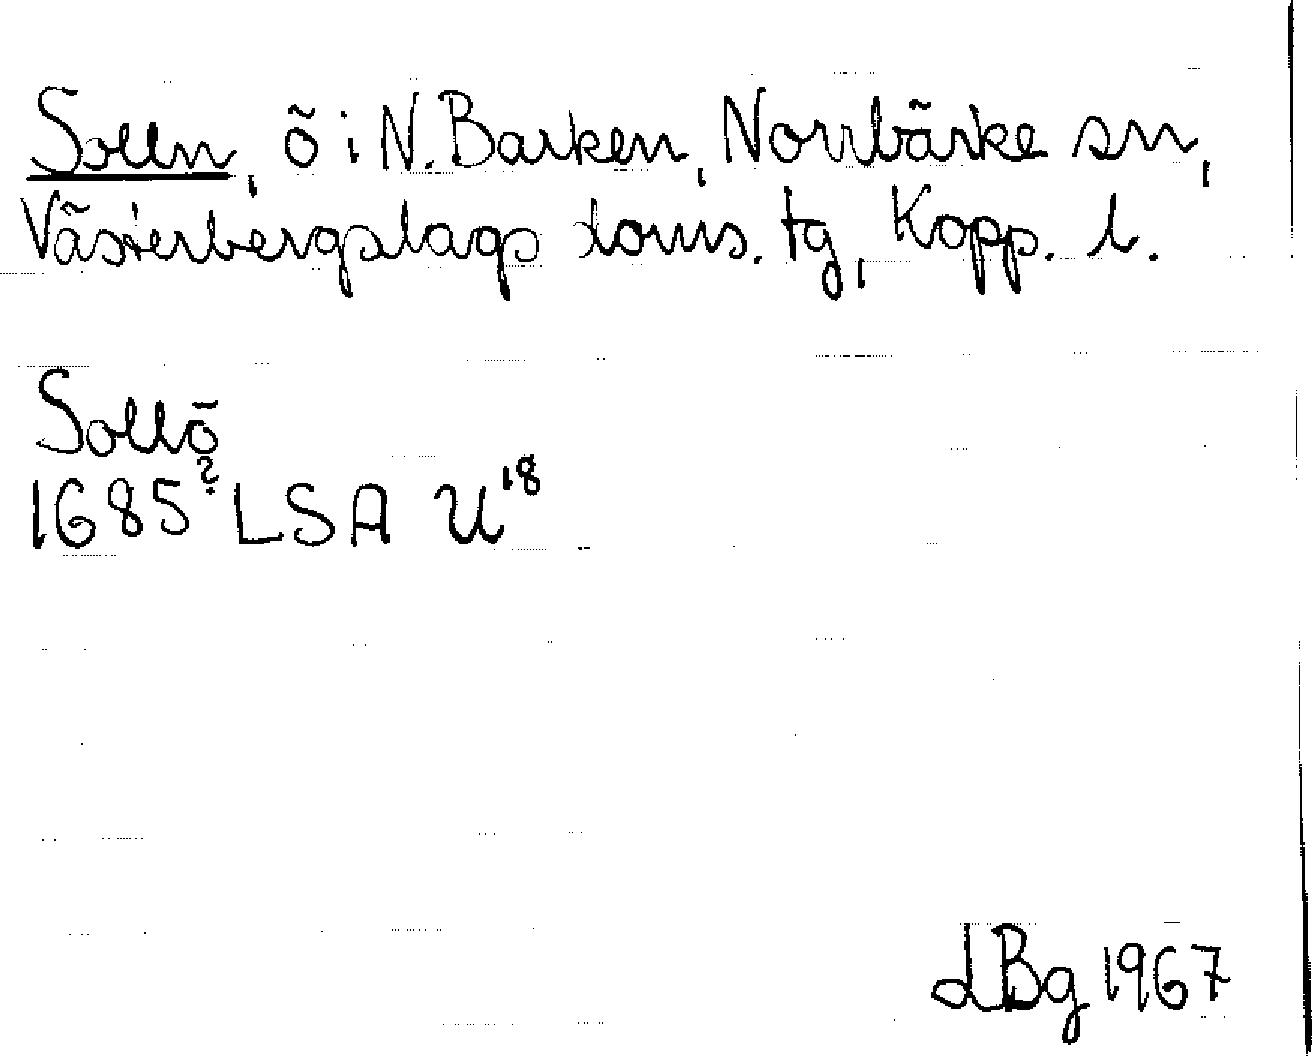 Solln, ö i N. Barken, Norrbärke sn,
Västerbergslags doms. tg, Kopp. l.
Sollö
1685? LSA U18
LBg 1967